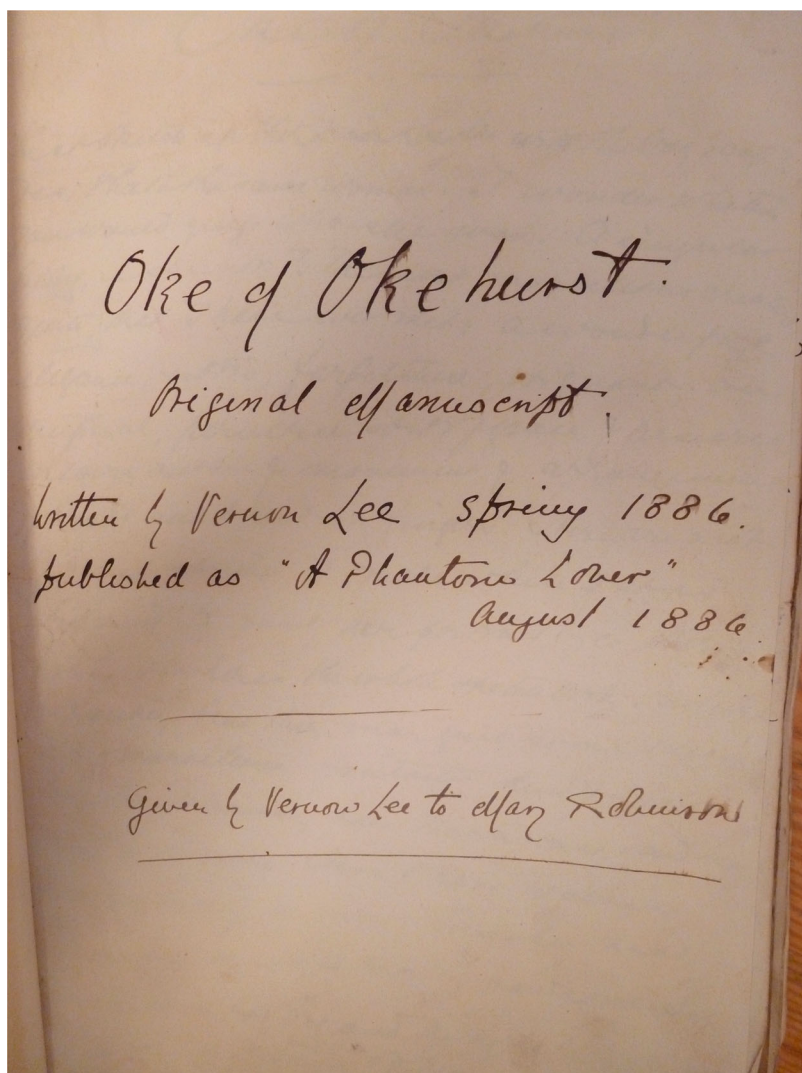 Oke of Okehurst.
Original Manuscript.
Written by Vernon Lee spring 1886.
published as "A Phantom Lover"
August 1886.
Given by Vernon Lee to Mary Robinson